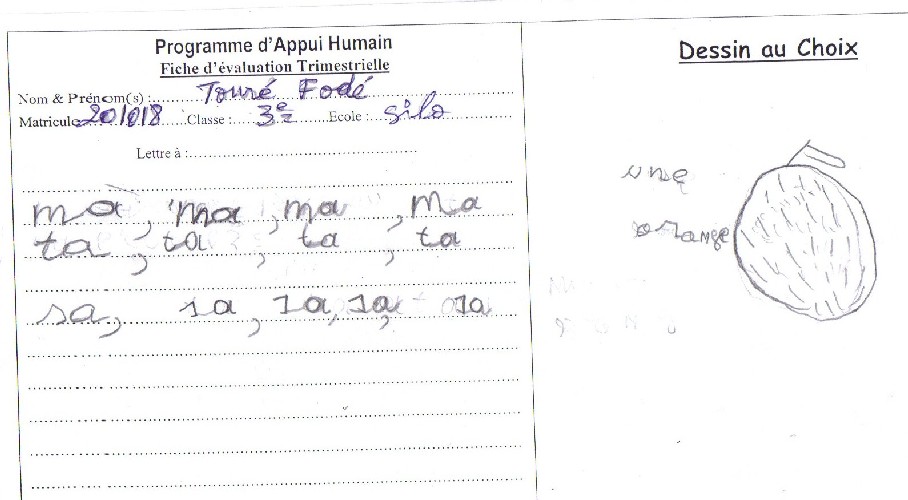 Programme d'Appui Humain
Fiche d'évaluation Trimestrielle
Nom & Prénom(s) : Touré Fodé
Matricule 201018 Classe : 3e Ecole : Silo
Lettre à :
ma, ma, ma, ma
ta, ta, ta, ta
sa, sa, sa, sa, sa
Dessin au Choix
une
orange